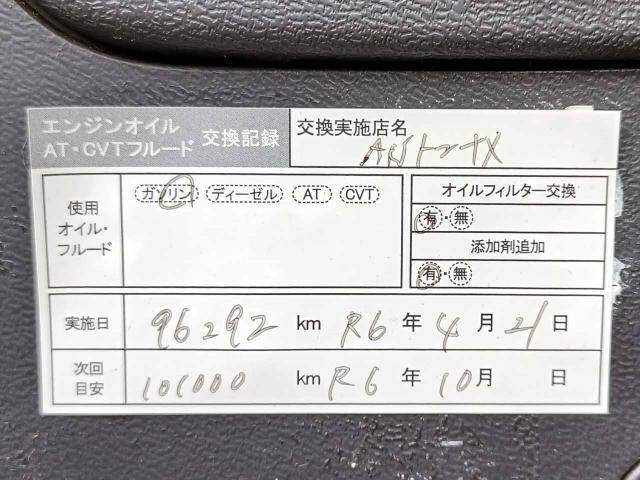 エンジンオイル
AT・CVTフルード 交換記録
交換実施店名
使用オイル・フルード
ガソリン ディーゼル AT CVT
オイルフィルター交換
有・無
添加剤追加
有・無
実施日 96292 km R6 年 4 月 21 日
次回目安 101000 km R6 年 10 月 日